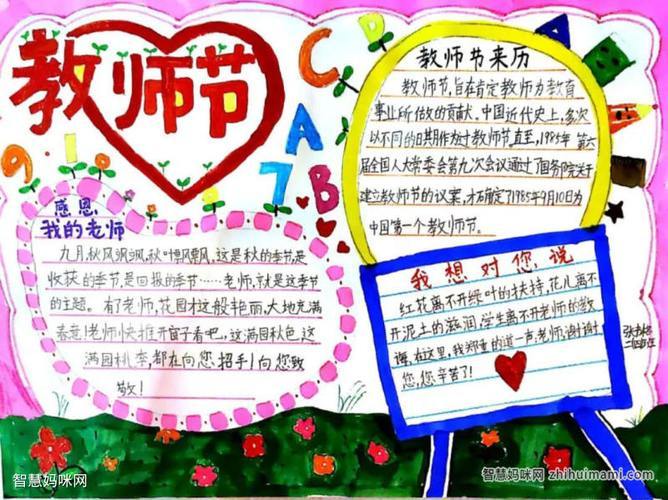 教师节
C
D
A
B
A
9 1 0
7
教师节来历
教师节,旨在肯定教师为教育
事业所做的贡献。中国近代史上,多次
以不同的日期作为过教师节。直至,1985年第六
届全国人大常委会第九次会议通过了国务院关于
建立教师节的议案,才确定了1985年9月10日为
中国第一个教师节。
感恩
我的老师
九月,秋风飒飒,秋叶飘飘,这是秋的季节,是
收获的季节,是回报的季节……老师,就是这季节
的主题。有了老师,花园才这般艳丽,大地充满
春意!老师快推开窗子看吧,这满园秋色,这
满园桃李,都在向您招手!向您致
敬!
我想对您说
红花离不开绿叶的扶持,花儿离不
开泥土的滋润,学生离不开老师的教
诲,在这里,我郑重的道一声,老师,谢谢
您,您辛苦了!
智慧妈咪网
智慧妈咪网 zhihuimami.com